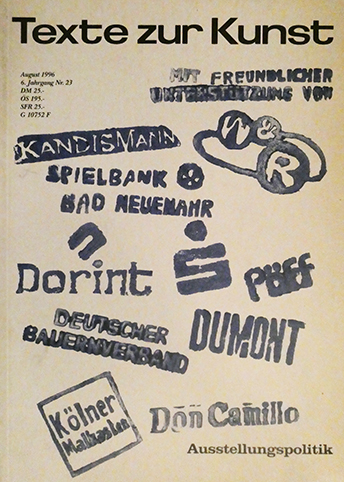 Texte zur Kunst
August 1996
6. Jahrgang Nr. 23
DM 25.-
ÖS 195.-
SFR 25.-
G 10752 F
MIT FREUNDLICHER
UNTERSTÜTZUNG VON
KANDISMANN
W&R
SPIELBANK
BAD NEUENAHR
Dorint
PÜFF
DEUTSCHER
BAUERNVERBAND
DUMONT
Kölner
Malkasten
Don Camillo
Ausstellungspolitik